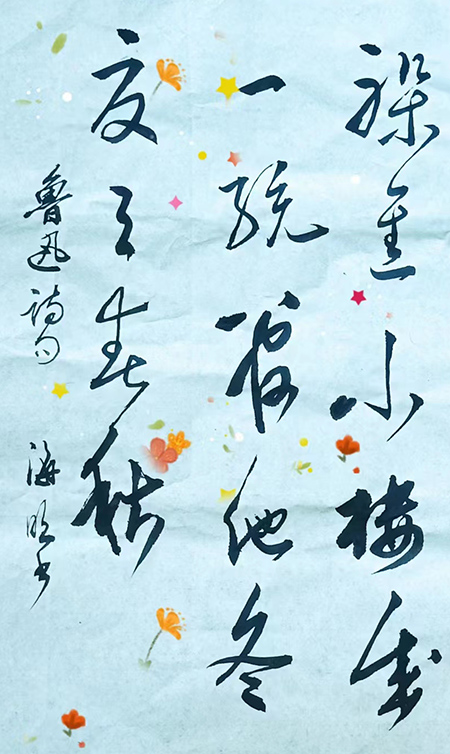 躲進小楼成
一統管他冬
夏与春秋
魯迅詩句
海明书